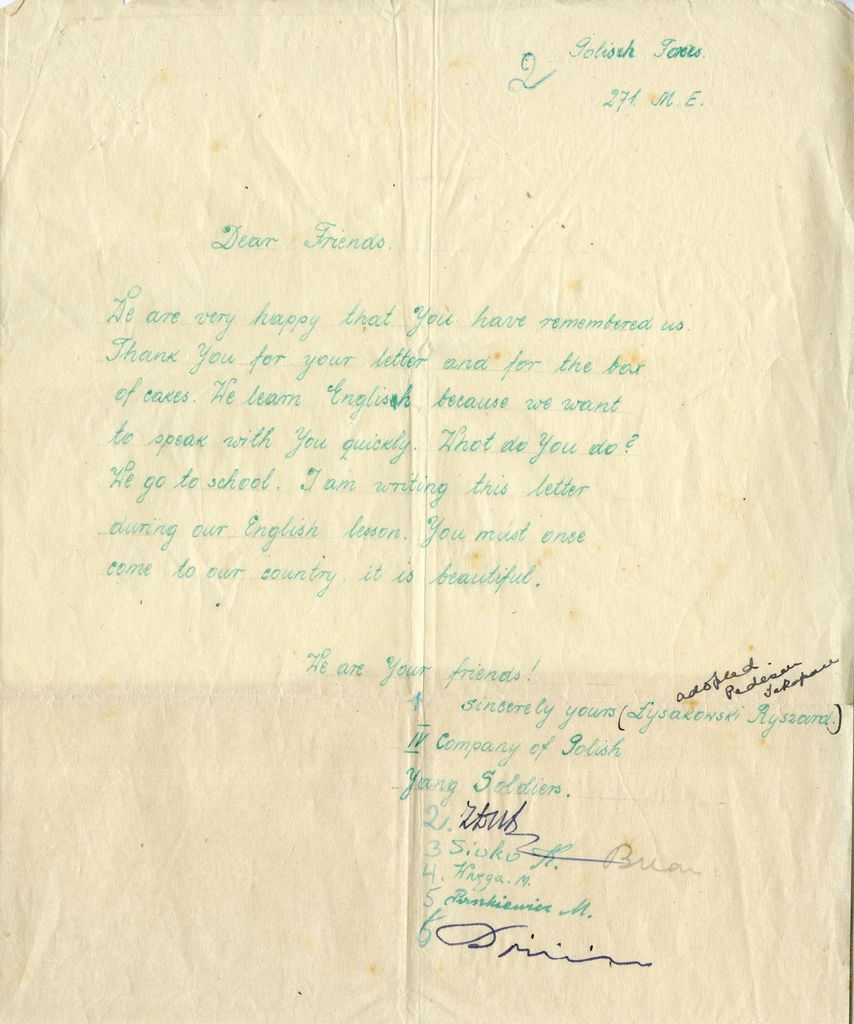 2 Polisch Forces.
271. M. E.
Dear Friends.
We are very happy that You have remembered us.
Thank You for your letter and for the box
of cakes. We learn Englisch, because we want
to speak with You quickly. What do You do?
We go to school. I am writing this letter
during our English lesson. You must once
come to our country, it is beautiful.
We are Your friends!
adopted
1 sincerely yours (Łysakowski Ryszard.)
IV Company of Polish
Yung Soldiers.
2.
3 Siwko H.
4. M.
5 M.
6